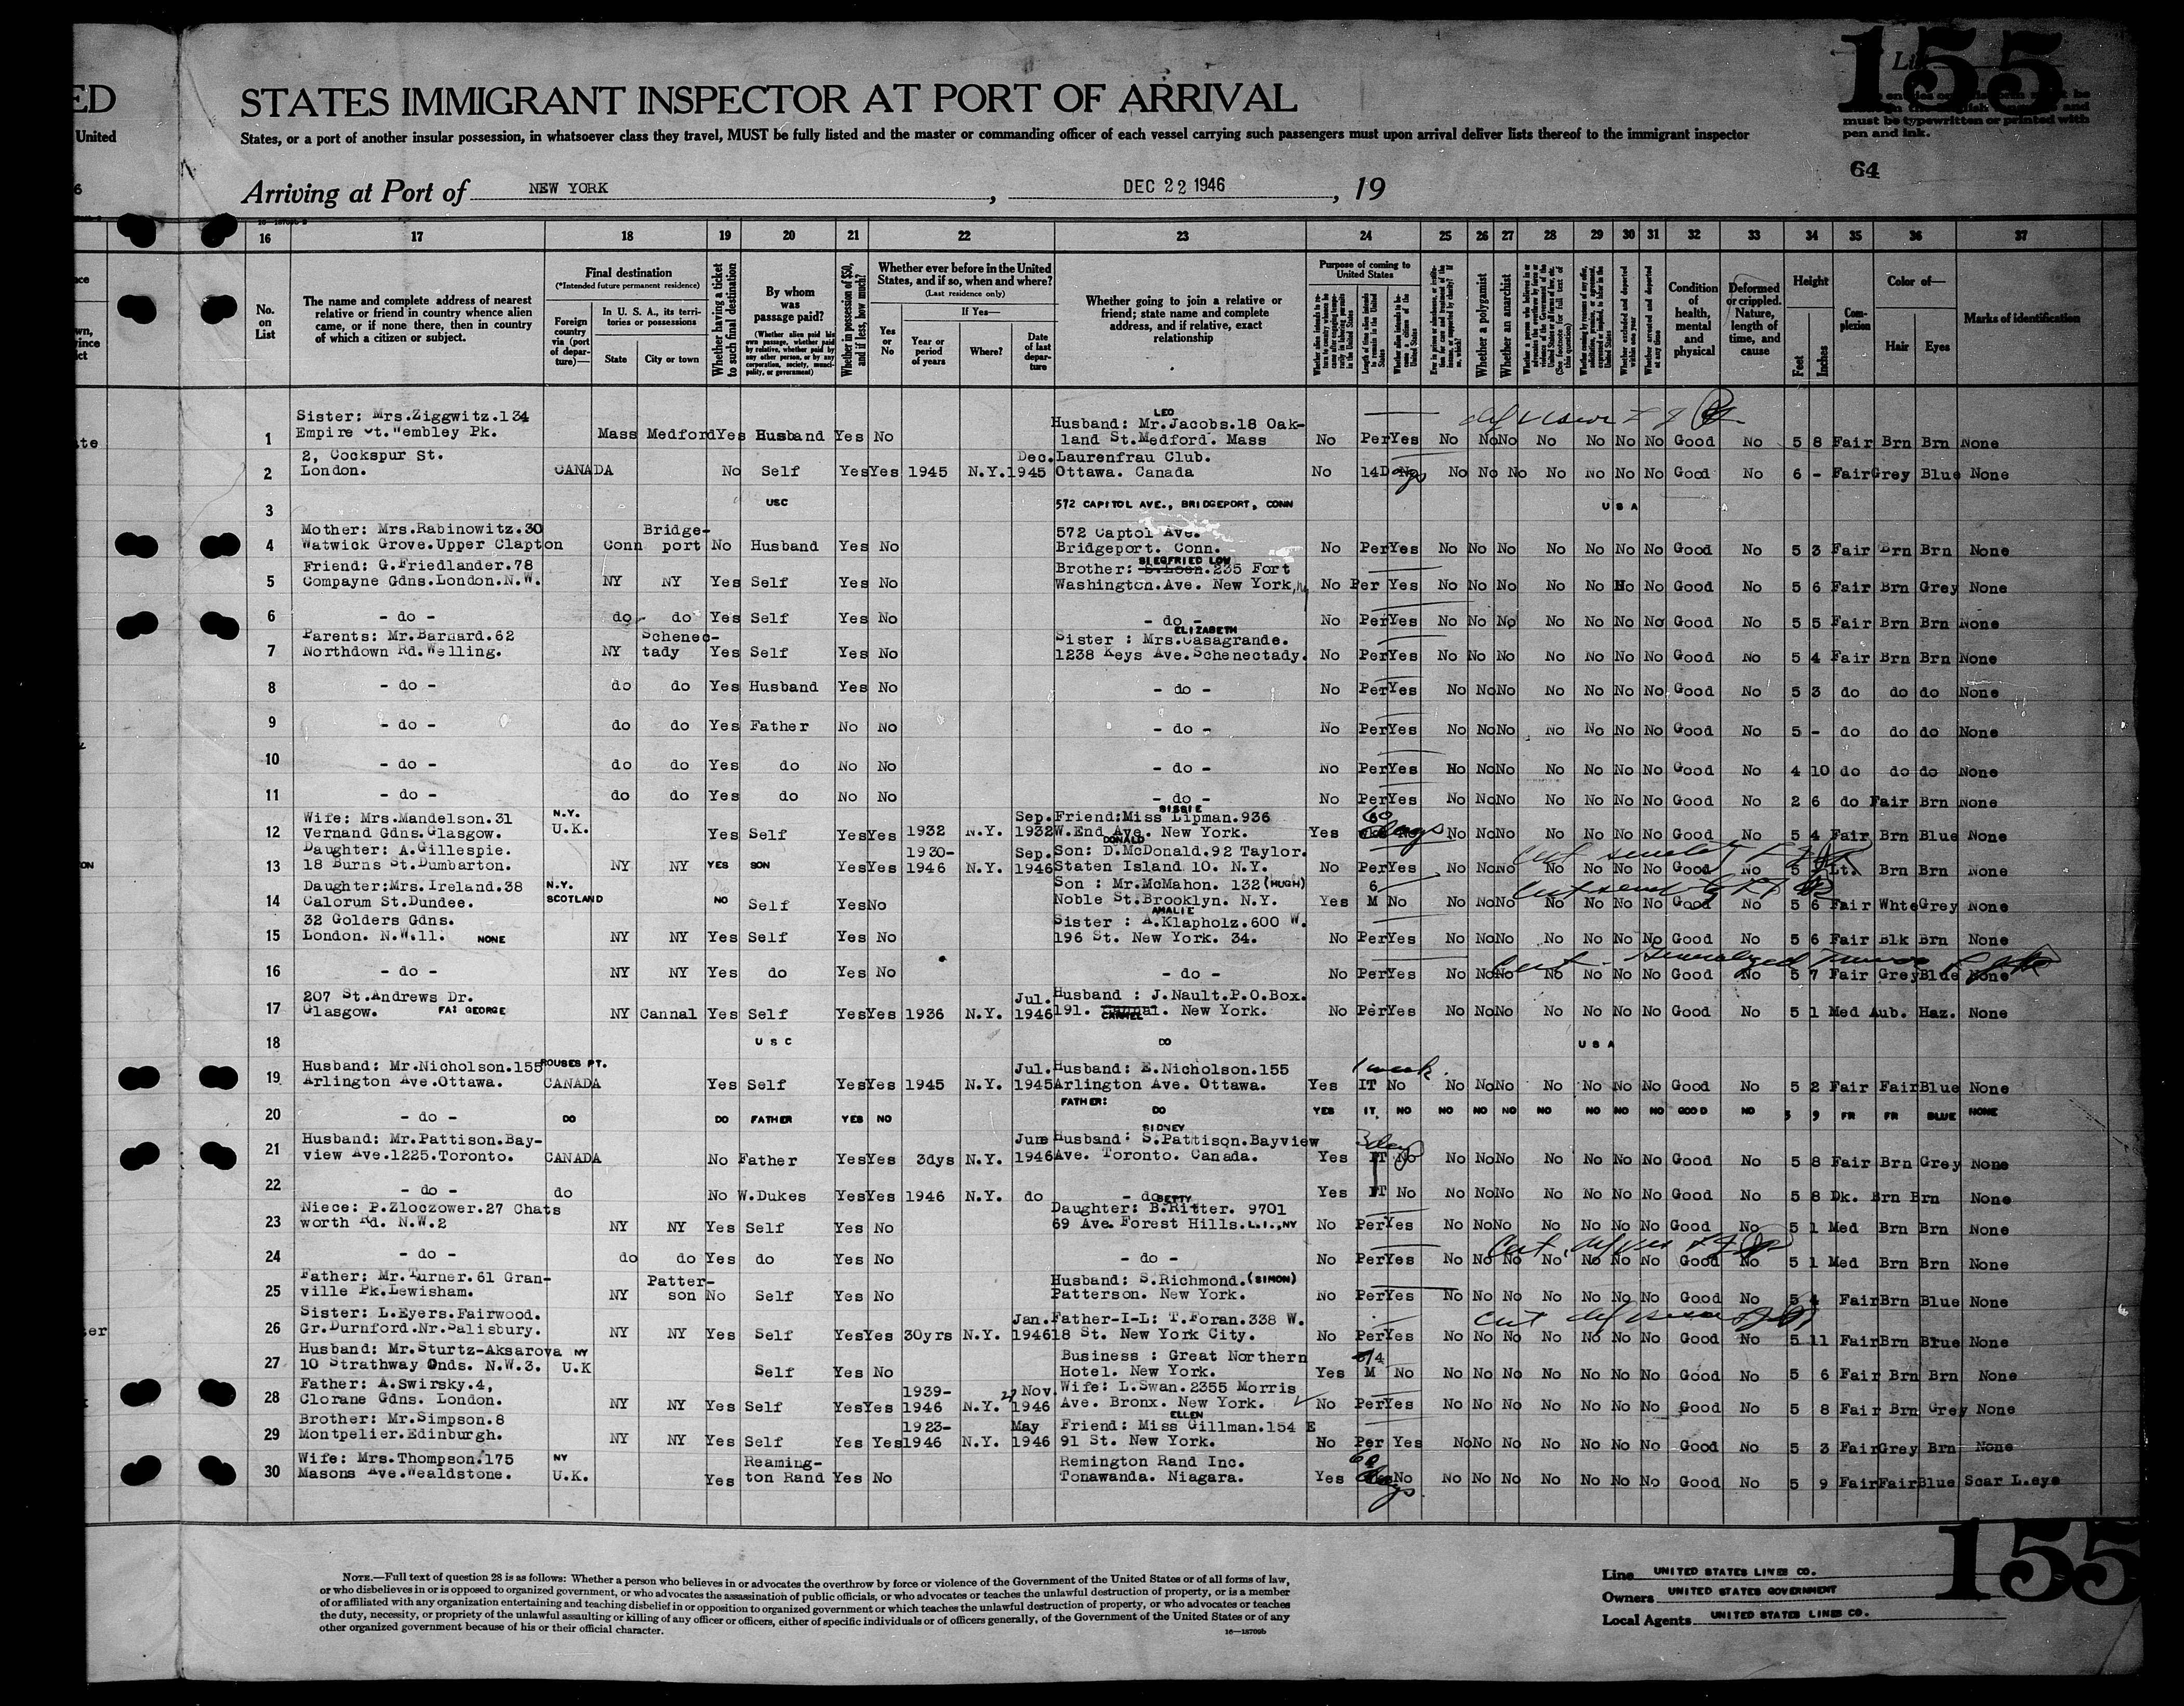 155
ED
STATES IMMIGRANT INSPECTOR AT PORT OF ARRIVAL
United
States, or a port of another insular possession, in whatsoever class they travel, MUST be fully listed and the master or commanding officer of each vessel carrying such passengers must upon arrival deliver lists thereof to the immigrant inspector
must be typewritten or printed with
pen and ink.
64
Arriving at Port of NEW YORK, DEC 22 1946, 19
16 17 18 19 20 21 22 23 24 25 26 27 28 29 30 31 32 33 34 35 36 37
No. on List
The name and complete address of nearest relative or friend in country whence alien came, or if none there, then in country of which a citizen or subject.
Final destination
(*Intended future permanent residence)
Foreign country via (port of departure)—
In U. S. A., its territories or possessions
State
City or town
Whether having a ticket to such final destination
By whom was passage paid?
(Whether alien paid his own passage, whether paid by relative, whether paid by any other person, or by any corporation, society, municipality, or government)
Whether in possession of $50, and if less, how much?
Whether ever before in the United States, and if so, when and where?
(Last residence only)
If Yes—
Yes or No
Year or period of years
Where?
Date of last departure
Whether going to join a relative or friend; state name and complete address, and if relative, exact relationship
Purpose of coming to United States
Whether a polygamist
Whether an anarchist
Whether excluded and deported within one year
Whether arrested and deported at any time
Condition of health, mental and physical
Deformed or crippled. Nature, length of time, and cause
Height
Feet
Inches
Complexion
Color of—
Hair
Eyes
Marks of identification
1 Sister: Mrs.Ziggwitz.134 Empire Ct.Wembley Pk. Mass Medford Yes Husband Yes No Husband: Mr. LEO Jacobs.18 Oakland St.Medford. Mass No Per Yes No No No No No No No Good No 5 8 Fair Brn Brn None
2 2, Cockspur St. London. CANADA No Self Yes Yes 1945 N.Y. Dec. 1945 Laurenfrau Club. Ottawa. Canada No 14 Days No No No No No No No Good No 6 - Fair Grey Blue None
3 USC 572 CAPITOL AVE., BRIDGEPORT, CONN U S A
4 Mother: Mrs.Rabinowitz.30 Watwick Grove.Upper Clapton Conn Bridge-port No Husband Yes No 572 Captol Ave. Bridgeport. Conn. No Per Yes No No No No No No No Good No 5 3 Fair Brn Brn None
5 Friend: G.Friedlander.78 Compayne Gdns.London.N.W. NY NY Yes Self Yes No Brother: SIEGFRIED LOW S.Loen.235 Fort Washington.Ave. New York, No Per Yes No No No No No No No Good No 5 6 Fair Brn Grey None
6 - do - do do Yes Self Yes No - do - No Per Yes No No No No No No No Good No 5 5 Fair Brn Brn None
7 Parents: Mr.Barnard.62 Northdown Rd.Welling. NY Schenec-tady Yes Self Yes No Sister : Mrs. ELIZABETH Casagrande. 1238 Keys Ave.Schenectady. No Per Yes No No No No No No No Good No 5 4 Fair Brn Brn None
8 - do - do do Yes Husband Yes No - do - No Per Yes No No No No No No No Good No 5 3 do do do None
9 - do - do do Yes Father No No - do - No Per Yes No No No No No No No Good No 5 - do do do None
10 - do - do do Yes do No No - do - No Per Yes No No No No No No No Good No 4 10 do do do None
11 - do - do do Yes do No No - do - No Per Yes No No No No No No No Good No 2 6 do Fair Brn None
12 Wife: Mrs.Mandelson.31 Vernand Gdns.Glasgow. N.Y. U.K. Yes Self Yes Yes 1932 N.Y. Sep. 1932 Friend:Miss SISSIE Lipman.936 W.End Ave. New York. Yes 60 days No No No No No No No No Good No 5 4 Fair Brn Blue None
13 Daughter: A.Gillespie. 18 Burns St.Dumbarton. NY NY YES SON Yes Yes 1930-1946 N.Y. Sep. 1946 Son: DONALD D.McDonald.92 Taylor. Staten Island 10. N.Y. No Per Yes No No No No No No No Good No 5 Lt. Brn Brn None
14 Daughter:Mrs.Ireland.38 Calorum St.Dundee. N.Y. SCOTLAND NO Self Yes No Son : Mr.McMahon. 132 (HUGH) Noble St.Brooklyn. N.Y. Yes 6 M No No No No No No No No Good No 5 6 Fair Whte Grey None
15 32 Golders Gdns. London. N.W.11. NONE NY NY Yes Self Yes No Sister : AMALIE A.Klapholz.600 W. 196 St. New York. 34. No Per Yes No No No No No No No Good No 5 6 Fair Blk Brn None
16 - do - NY NY Yes do Yes No - do - No Per Yes No No No No No No No Good No 5 7 Fair Grey Blue None
17 207 St.Andrews Dr. Glasgow. FA: GEORGE NY Cannal Yes Self Yes Yes 1936 N.Y. Jul. 1946 Husband : J.Nault.P.O.Box. 191. Cannal. CARMEL New York. No Per Yes No No No No No No No Good No 5 1 Med Aub. Haz. None
18 U S C DO U S A
19 Husband: Mr.Nicholson.155 Arlington Ave.Ottawa. ROUSES PT. CANADA Yes Self Yes Yes 1945 N.Y. Jul. 1945 Husband: E.Nicholson.155 Arlington Ave. Ottawa. Yes 1 week. IT No No No No No No No No Good No 5 2 Fair Fair Blue None
20 - do - DO DO FATHER YES NO FATHER: DO YES IT. NO NO NO NO NO NO NO NO GOOD NO 3 9 FR FR BLUE NONE
21 Husband: Mr.Pattison.Bay-view Ave.1225.Toronto. CANADA No Father Yes Yes 3dys N.Y. June 1946 Husband: SIDNEY S.Pattison.Bayview Ave. Toronto. Canada. Yes 3 days IT No No No No No No No No Good No 5 8 Fair Brn Grey None
22 - do - do No W.Dukes Yes Yes 1946 N.Y. do - do - Yes IT No No No No No No No No Good No 5 8 Dk. Brn Brn None
23 Niece: P.Zloczower.27 Chatsworth Rd. N.W.2 NY NY Yes Self Yes No Daughter: BETTY B.Ritter. 9701 69 Ave. Forest Hills. L.I., NY No Per Yes No No No No No No No Good No 5 1 Med Brn Brn None
24 - do - do do Yes do Yes No - do - No Per Yes No No No No No No No Good No 5 1 Med Brn Brn None
25 Father: Mr.Turner.61 Gran-ville Pk.Lewisham. NY Patter-son No Self Yes No Husband: S.Richmond.(SIMON) Patterson. New York. No Per Yes No No No No No No No Good No 5 4 Fair Brn Blue None
26 Sister: L.Eyers.Fairwood. Gr.Durnford.Nr.Salisbury. NY NY Yes Self Yes Yes 30yrs N.Y. Jan. 1946 Father-I-L: T.Foran.338 W. 18 St. New York City. No Per Yes No No No No No No No Good No 5 11 Fair Brn Blue None
27 Husband: Mr.Sturtz-Aksarova 10 Strathway Gnds. N.W.3. NY U.K Self Yes No Business : Great Northern Hotel. New York. Yes M No No No No No No No No Good No 5 6 Fair Brn Brn None
28 Father: A.Swirsky.4, Clorane Gdns. London. NY NY Yes Self Yes Yes 1939-1946 N.Y. 27 Nov. 1946 Wife: L.Swan.2355 Morris Ave. Bronx. New York. No Per Yes No No No No No No No Good No 5 8 Fair Brn Grey None
29 Brother: Mr.Simpson.8 Montpelier.Edinburgh. NY NY Yes Self Yes Yes 1923-1946 N.Y. May 1946 Friend: Miss ELLEN Gillman.154 E 91 St. New York. No Per Yes No No No No No No No Good No 5 3 Fair Grey Brn None
30 Wife: Mrs.Thompson.175 Masons Ave.Wealdstone. NY U.K. Yes Reaming-ton Rand Yes No Remington Rand Inc. Tonawanda. Niagara. Yes 60 days No No No No No No No No Good No 5 9 Fair Fair Blue Scar L.eye
NOTE.—Full text of question 28 is as follows: Whether a person who believes in or advocates the overthrow by force or violence of the Government of the United States or of all forms of law,
or who disbelieves in or is opposed to organized government, or who advocates the assassination of public officials, or who advocates or teaches the unlawful destruction of property, or is a member
of or affiliated with any organization entertaining and teaching disbelief in or opposition to organized government or which teaches the unlawful destruction of property, or who advocates or teaches
the duty, necessity, or propriety of the unlawful assaulting or killing of any officer or officers, either of specific individuals or of officers generally, of the Government of the United States or of any
other organized government because of his or their official character.
16—18709b
Line UNITED STATES LINES CO.
Owners UNITED STATES GOVERNMENT
Local Agents UNITED STATES LINES CO.
155